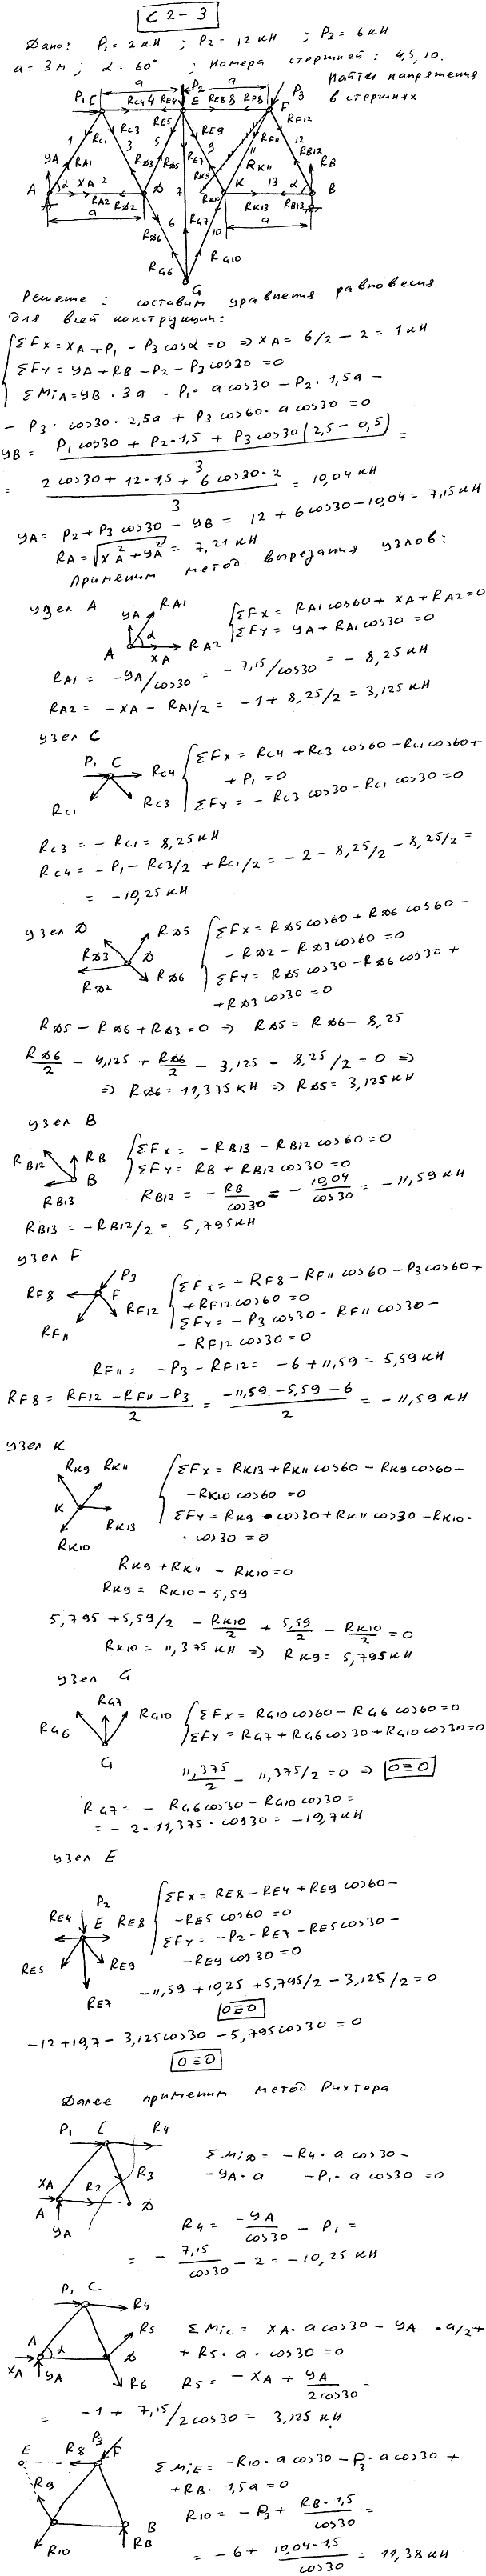 С2-3
Дано: P₁ = 2 кН ; P₂ = 12 кН ; P₃ = 6 кН
a = 3 м ; α = 60° ; Номера стержней: 4, 5, 10.
Найти напряжения
в стержнях
a P₂ a P₃
P₁ C RC4 4 RE4 E RE8 8 RF8 F
1 RC1 RC3 3 RE5 5 RE7 RE9 9 11 RF11 RF12 12
YA RA1 RD3 RD5 RK9 RK11 RB12 RB
A α XA 2 D 7 K 13 α B
RA2 RD2 RK10 RK13 RB13
a 6 RD6 RG7 10 a
RG6 RG10
G
Решение: составим уравнения равновесия
для всей конструкции:
ΣFx = XA + P₁ - P₃ cosα = 0 ⇒ XA = 6/2 - 2 = 1 кН
ΣFy = YA + RB - P₂ - P₃ cos30 = 0
ΣMiA = YB · 3a - P₁ · a cos30 - P₂ · 1,5a -
- P₃ · cos30 · 2,5a + P₃ cos60 · a cos30 = 0
YB = (P₁ cos30 + P₂ · 1,5 + P₃ cos30 (2,5 - 0,5)) / 3 =
= (2 cos30 + 12 · 1,5 + 6 cos30 · 2) / 3 = 10,04 кН
YA = P₂ + P₃ cos30 - YB = 12 + 6 cos30 - 10,04 = 7,15 кН
RA = √(XA² + YA²) = 7,21 кН
Применим метод вырезания узлов:
узел A
YA RA1
α
A XA RA2
ΣFx = RA1 cos60 + XA + RA2 = 0
ΣFy = YA + RA1 cos30 = 0
RA1 = -YA/cos30 = -7,15/cos30 = -8,25 кН
RA2 = -XA - RA1/2 = -1 + 8,25/2 = 3,125 кН
узел C
P₁ C RC4
RC1 RC3
ΣFx = RC4 + RC3 cos60 - RC1 cos60 +
+ P₁ = 0
ΣFy = - RC3 cos30 - RC1 cos30 = 0
RC3 = - RC1 = 8,25 кН
RC4 = - P₁ - RC3/2 + RC1/2 = -2 - 8,25/2 - 8,25/2 =
= -10,25 кН
узел D
RD3 RD5
D
RD2 RD6
ΣFx = RD5 cos60 + RD6 cos60 -
- RD2 - RD3 cos60 = 0
ΣFy = RD5 cos30 - RD6 cos30 +
+ RD3 cos30 = 0
RD5 - RD6 + RD3 = 0 ⇒ RD5 = RD6 - 8,25
RD6/2 - 4,125 + RD6/2 - 3,125 - 8,25/2 = 0 ⇒
⇒ RD6 = 11,375 кН ⇒ RD5 = 3,125 кН
узел B
RB12 RB
B
RB13
ΣFx = - RB13 - RB12 cos60 = 0
ΣFy = RB + RB12 cos30 = 0
RB12 = - RB/cos30 = - 10,04/cos30 = -11,59 кН
RB13 = - RB12/2 = 5,795 кН
узел F
P₃
RF8 F
RF11 RF12
ΣFx = - RF8 - RF11 cos60 - P₃ cos60 +
+ RF12 cos60 = 0
ΣFy = - P₃ cos30 - RF11 cos30 -
- RF12 cos30 = 0
RF11 = - P₃ - RF12 = -6 + 11,59 = 5,59 кН
RF8 = (RF12 - RF11 - P₃)/2 = (-11,59 - 5,59 - 6)/2 = -11,59 кН
узел K
RK9 RK11
K RK13
RK10
ΣFx = RK13 + RK11 cos60 - RK9 cos60 -
- RK10 cos60 = 0
ΣFy = RK9 · cos30 + RK11 cos30 - RK10 ·
· cos30 = 0
RK9 + RK11 - RK10 = 0
RK9 = RK10 - 5,59
5,795 + 5,59/2 - RK10/2 + 5,59/2 - RK10/2 = 0
RK10 = 11,375 кН ⇒ RK9 = 5,795 кН
узел G
RG7
RG6 RG10
G
ΣFx = RG10 cos60 - RG6 cos60 = 0
ΣFy = RG7 + RG6 cos30 + RG10 cos30 = 0
11,375/2 - 11,375/2 = 0 ⇒ 0 ≡ 0
RG7 = - RG6 cos30 - RG10 cos30 =
= - 2 · 11,375 · cos30 = -19,7 кН
узел E
P₂
RE4 E RE8
RE5 RE9
RE7
ΣFx = RE8 - RE4 + RE9 cos60 -
- RE5 cos60 = 0
ΣFy = - P₂ - RE7 - RE5 cos30 -
- RE9 cos30 = 0
-11,59 + 10,25 + 5,795/2 - 3,125/2 = 0
0 ≡ 0
-12 + 19,7 - 3,125 cos30 - 5,795 cos30 = 0
0 ≡ 0
Далее применим метод Риттера
P₁ C R4
R3
XA R2
A D
YA
ΣMiD = - R4 · a cos30 -
- YA · a - P₁ · a cos30 = 0
R4 = -YA/cos30 - P₁ =
= - 7,15/cos30 - 2 = -10,25 кН
P₁ C R4
A α R5
D
XA YA R6
ΣMiC = XA · a cos30 - YA · a/2 +
+ R5 · a · cos30 = 0
R5 = - XA + YA/2cos30 =
= -1 + 7,15/2cos30 = 3,125 кН
E R8 P₃ F
R9
B
R10 RB
ΣMiE = - R10 · a cos30 - P₃ · a cos30 +
+ RB · 1,5a = 0
R10 = - P₃ + RB · 1,5/cos30 =
= -6 + 10,04 · 1,5/cos30 = 11,38 кН